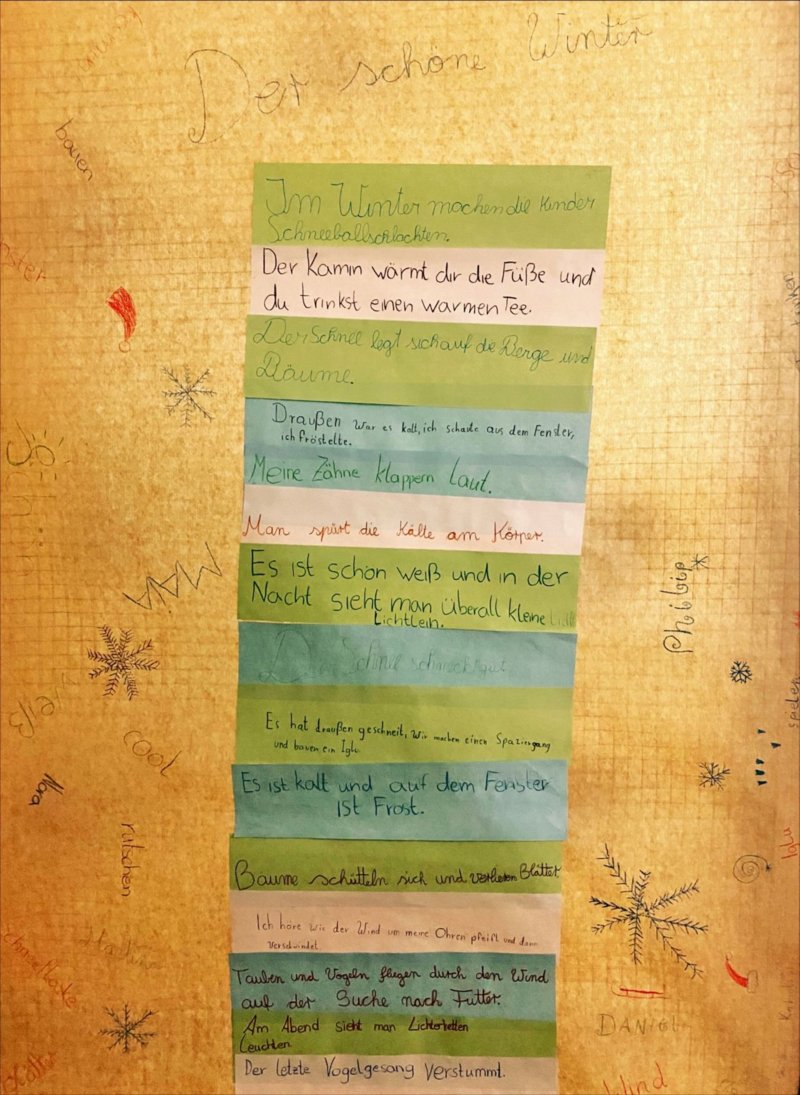 Der schöne Winter
bauen
Im Winter machen die Kinder
Schneeballschlachten.
Der Kamin wärmt dir die Füße und
du trinkst einen warmen Tee.
Der Schnee legt sich auf die Berge und
Bäume.
Draußen war es kalt, ich schaute aus dem Fenster,
ich fröstelte.
Meine Zähne klappern laut.
Man spürt die Kälte am Körper.
Es ist schön weiß und in der
Nacht sieht man überall kleine
Lichtlein.
Der Schnee schmeckt gut.
Es hat draußen geschneit, wir machen einen Spaziergang
und bauen ein Iglu.
Es ist kalt und auf dem Fenster
ist Frost.
Bäume schütteln sich und verlieren Blätter
Ich höre wie der Wind um meine Ohren pfeift und dann
verschwindet.
Tauben und Vögeln fliegen durch den Wind
auf der Suche nach Futter.
Am Abend sieht man Lichterketten
leuchten
Der letzte Vogelgesang verstummt.
Philip
weiß
cool
Nora
rutschen
Iglu
DANIEL
Wind